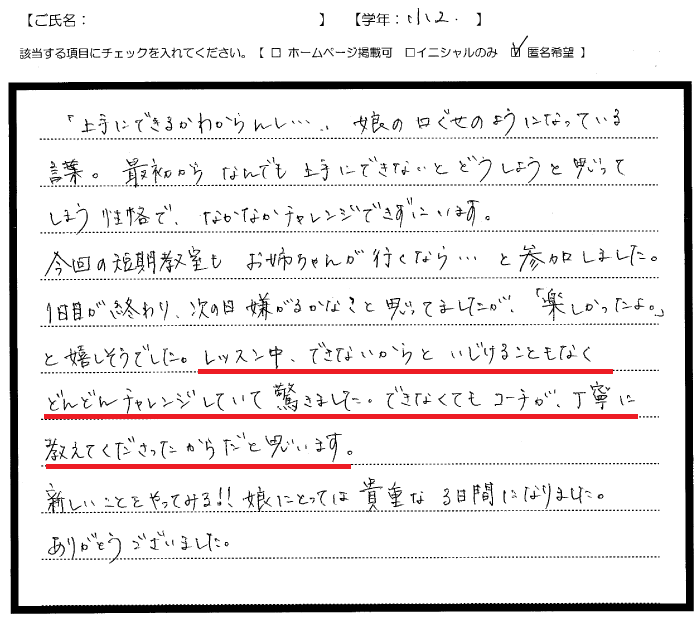 【ご氏名： 】 【学年：小2. 】
該当する項目にチェックを入れてください。【 □ ホームページ掲載可 □イニシャルのみ ☑ 匿名希望 】
「上手にできるかわからんし….. 娘の口ぐせのようになっている
言葉。最初からなんでも上手にできないとどうしようと思って
しまう性格で、なかなかチャレンジできずにいます。
今回の短期教室も お姉ちゃんが行くなら… と参加しました。
1日目が終わり、次の日嫌がるかなぁと思ってましたが、「楽しかったよ。」
と嬉しそうでした。レッスン中、できないからと いじけることもなく
どんどんチャレンジしていて驚きました。できなくてもコーチが、丁寧に
教えてくださったからだと思います。
新しいことをやってみる!! 娘にとっては貴重な3日間になりました。
ありがとうございました。